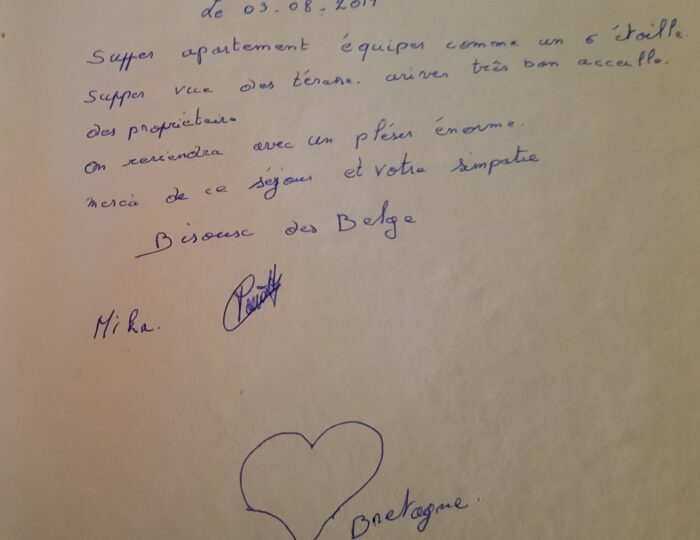 de 03.08.2019
Supper apartement équiper comme un 5 étoille.
Supper vue des térasse. ariver très bon acceille.
des propriétaire
On reviendra avec un pléser énorme.
merci de ce séjour et votre simpatie
Bisousc des Belge
Mika.
Bretagne.